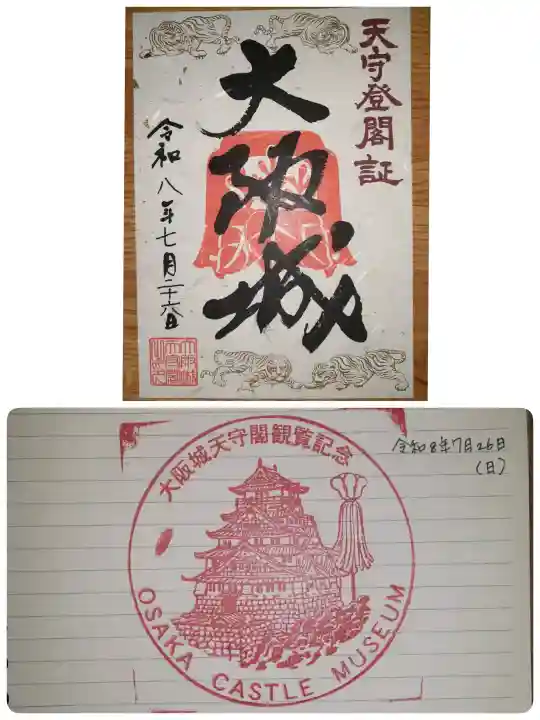 天守登閣証
大阪城
令和八年七月二十六日
大阪城天守閣観覧記念
OSAKA CASTLE MUSEUM
令和8年7月26日
(日)